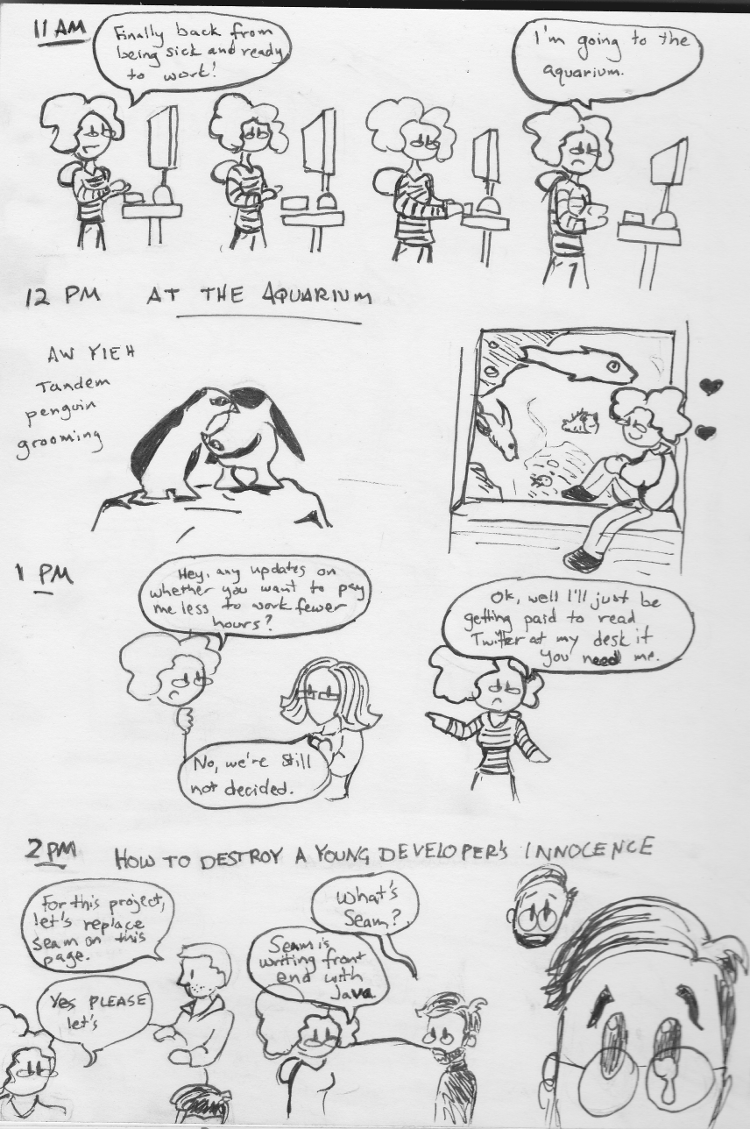 11 AM
Finally back from
being sick and ready
to work!
I'm going to the
aquarium.
12 PM AT THE AQUARIUM
AW YIEH
Tandem
penguin
grooming
1 PM
Hey, any updates on
whether you want to pay
me less to work fewer
hours?
No, we're still
not decided.
Ok, well I'll just be
getting paid to read
Twitter at my desk if
you need me.
2 PM HOW TO DESTROY A YOUNG DEVELOPER'S INNOCENCE
For this project,
let's replace
seam on this
page.
Yes PLEASE
let's
What's
Seam?
Seam is
writing front
end with
Java